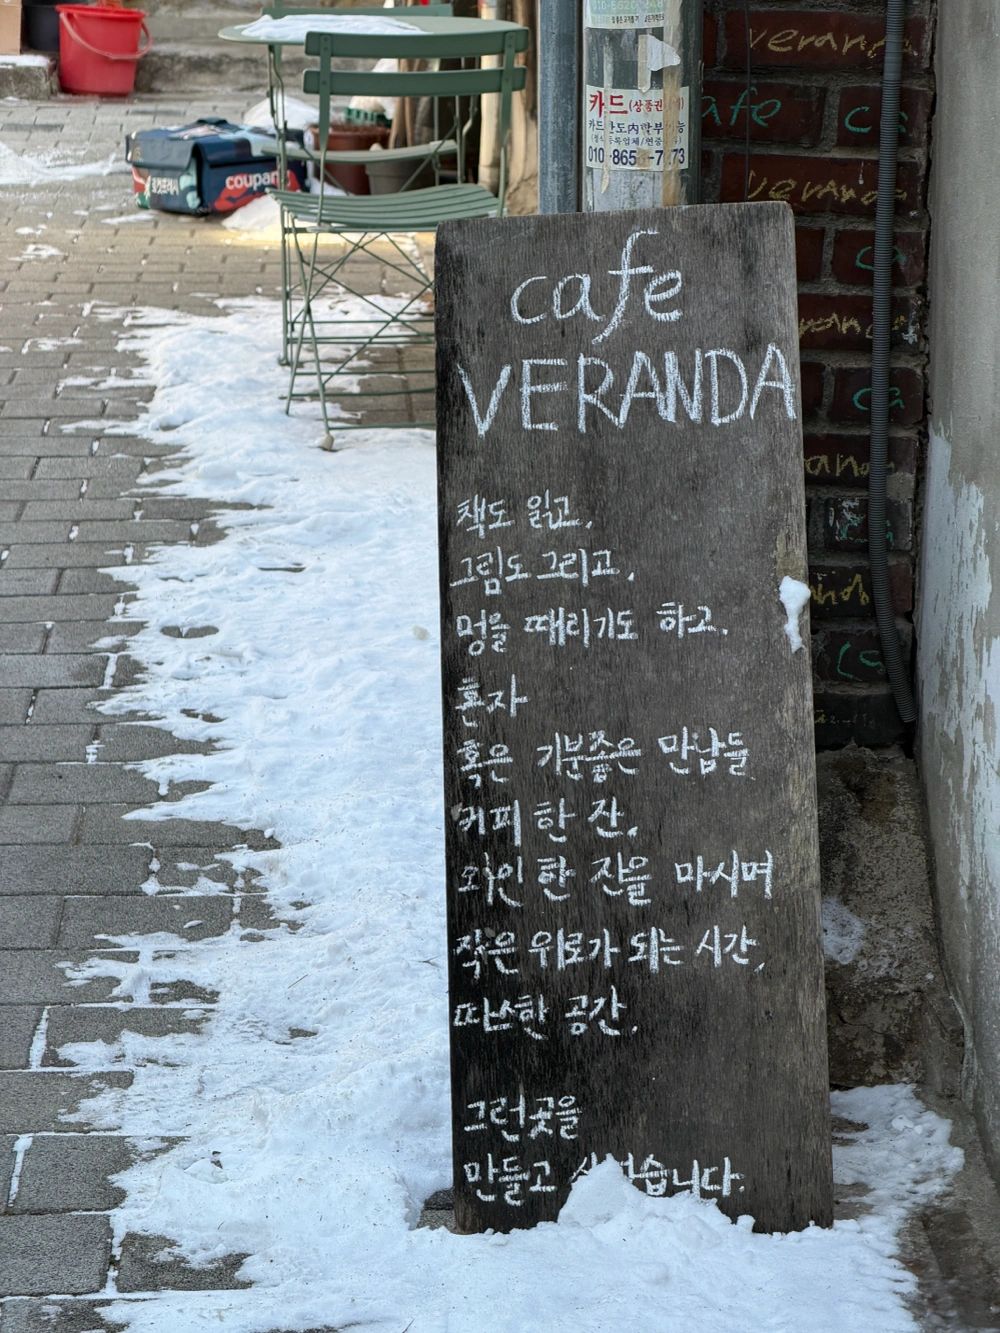 veranda
카드(상품권
cafe ca
veranda
coupang
로켓프레시
cafe
VERANDA
책도 읽고,
그림도 그리고,
멍을 때리기도 하고.
혼자
혹은 기분좋은 만남들
커피 한 잔,
와인 한 잔을 마시며
작은 위로가 되는 시간,
따스한 공간.
그런곳을
만들고